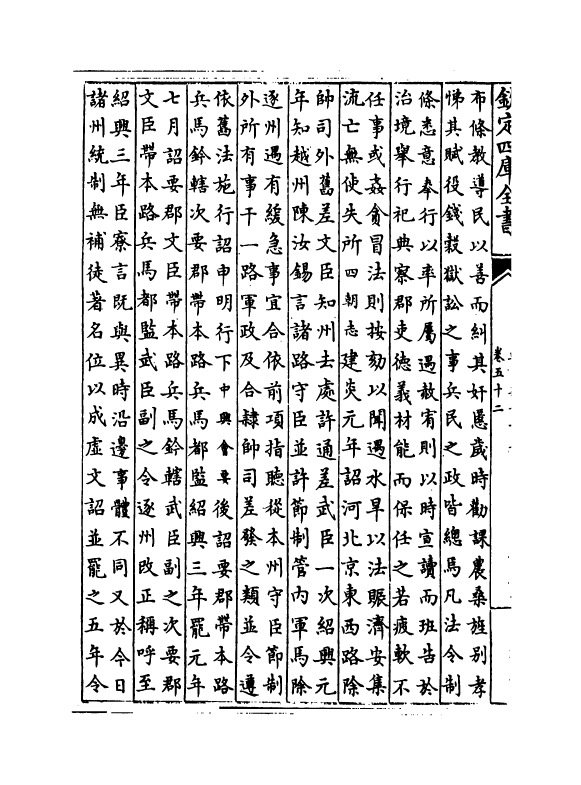 欽定四庫全書
卷五十二
布條教導民以善而糾其奸慝歲時勸課農桑旌別孝
悌其賦役錢穀獄訟之事兵民之政皆總焉凡法令制
條悉意奉行以率所屬遇赦宥則以時宣讀而班告於
治境舉行祀典察郡吏德義材能而保任之若疲軟不
任事或姦貪冒法則按劾以聞遇水旱以法賑濟安集
流亡無使失所四朝志建炎元年詔河北京東西路除
帥司外舊差文臣知州去處許通差武臣一次紹興元
年知越州陳汝錫言諸路守臣並許節制管內軍馬除
逐州遇有緩急事宜合依前項指聽從本州守臣節制
外所有事干一路軍政及合隸帥司差發之類並令遵
依舊法施行詔申明行下中興會要後詔要郡帶本路
兵馬鈐轄次要郡帶本路兵馬都監紹興三年罷元年
七月詔要郡文臣帶本路兵馬鈐轄武臣副之次要郡
文臣帶本路兵馬都監武臣副之令逐州改正稱呼至
紹興三年臣寮言既與異時沿邊事體不同又於今日
諸州統制無補徒著名位以成虛文詔並罷之五年令